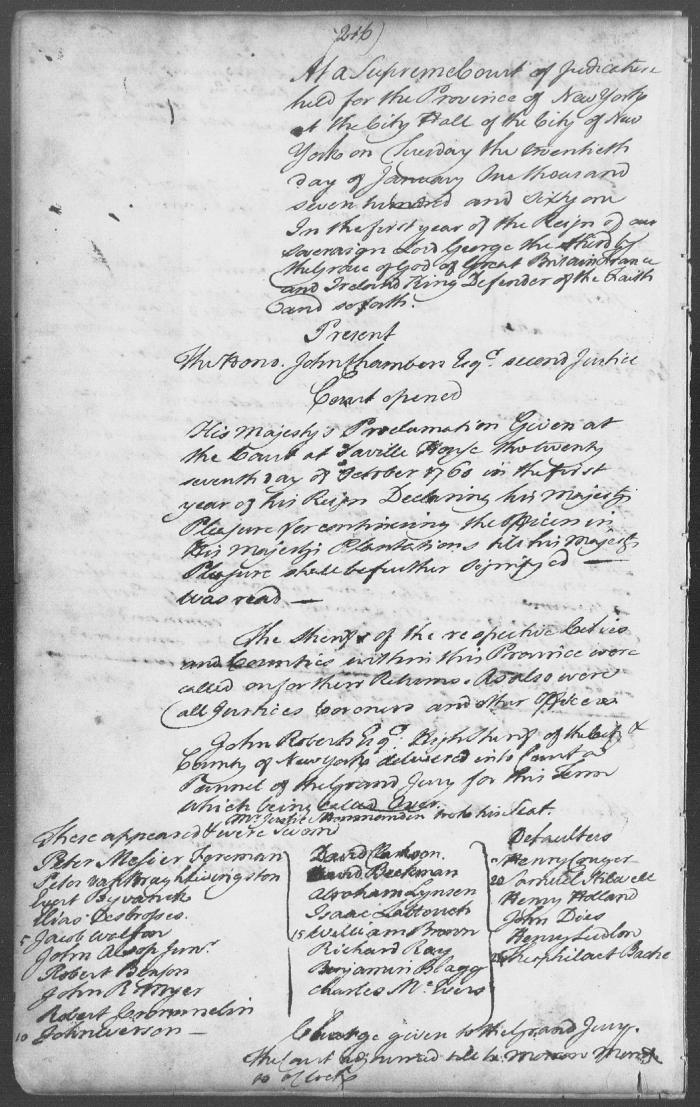 (216)
At a Supreme Court of Judicature
held for the Province of New York
at the City Hall of the City of New
York on Tuesday the twentieth
day of January One thousand
seven hundred and sixty one
In the first year of the Reign of our
sovereign Lord George the third by
the Grace of God of Great Britain France
and Ireland King Defender of the Faith
and so forth.
Present
The Hono. John Chambers Esqr. second Justice
Court opened
His Majesty's Proclamation Given at
the Court at Saville House the twenty
seventh day of October 1760 in the first
year of his Reign Declaring his Majesty's
Pleasure for continuing the officers in
His Majesty's Plantations till his Majestys
Pleasure shall be further signifyed —
was read —
The Sheriffs of the respective Cities
and Counties within this Province were
called on for their Returns. As also were
all Justices Coroners and other Officers
John Roberts Esqr. High Sheriff of the City &
County of New York delivered into Court a
Pannel of the Grand Jury for this Term
which being called over.
Mr. Justice took his Seat.
These appeared & were sworn
Peter Mesier Foreman
Peter van Brugh Livingston
Evert Byvanck
Elias Desbrosses.
5 Jacob Walton
John Alsop Junr.
Robert Benson
John R. Myer
Robert Crommelin
10 John Everson —
David Clarkson.
David Beekman
Abraham Lynsen
Isaac Labtouch
15 William Brown
Richard Ray
Benjamin Blagg
Charles Mc.Evers
Defaulters
Henry Cruger
20 Samuel Stilwell
Henry Holland
John Dies
Henry Ludlow
Theophilact Bache
Charge given to the Grand Jury.
The Court adjourned till to Morrow Morng
10 oClock